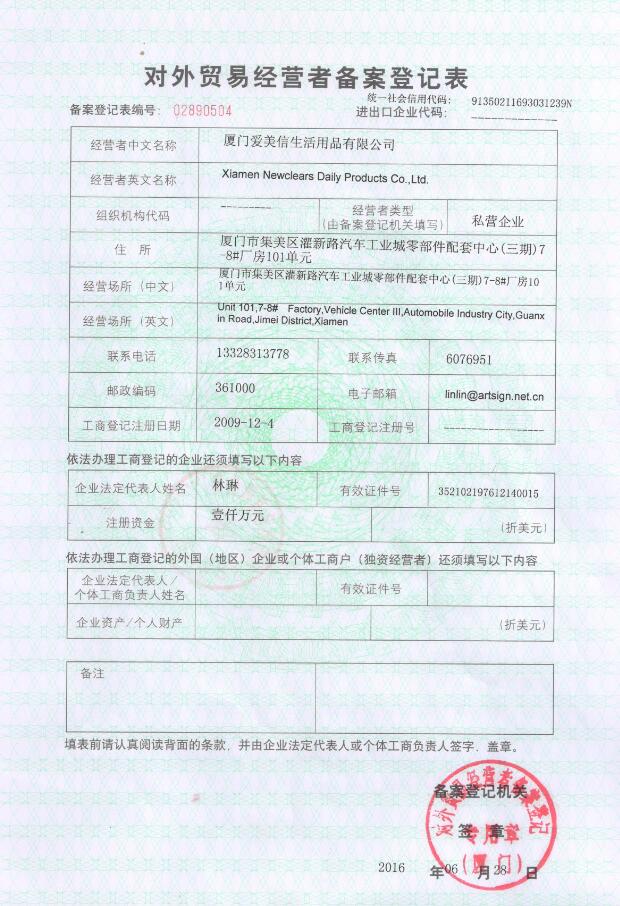 对外贸易经营者备案登记表
统一社会信用代码： 91350211693031239N
备案登记表编号： 02890504 进出口企业代码： -------------
经营者中文名称 厦门爱美信生活用品有限公司
经营者英文名称 Xiamen Newclears Daily Products Co.,Ltd.
组织机构代码 --------- 经营者类型
(由备案登记机关填写) 私营企业
住 所 厦门市集美区灌新路汽车工业城零部件配套中心(三期)7
-8#厂房101单元
经营场所（中文） 厦门市集美区灌新路汽车工业城零部件配套中心(三期)7-8#厂房10
1单元
经营场所（英文） Unit 101,7-8# Factory,Vehicle Center III,Automobile Industry City,Guanx
in Road,Jimei District,Xiamen
联系电话 13328313778 联系传真 6076951
邮政编码 361000 电子邮箱 linlin@artsign.net.cn
工商登记注册日期 2009-12-4 工商登记注册号 ------------------
依法办理工商登记的企业还须填写以下内容
企业法定代表人姓名 林琳 有效证件号 352102197612140015
注册资金 壹仟万元 (折美元)
依法办理工商登记的外国（地区）企业或个体工商户（独资经营者）还须填写以下内容
企业法定代表人/
个体工商负责人姓名 有效证件号
企业资产/个人财产 (折美元)
备注
填表前请认真阅读背面的条款，并由企业法定代表人或个体工商负责人签字、盖章。
对外贸易经营者备案登记
备案登记机关
签 章
专用章
(厦门)
2016 年 06 月 28 日